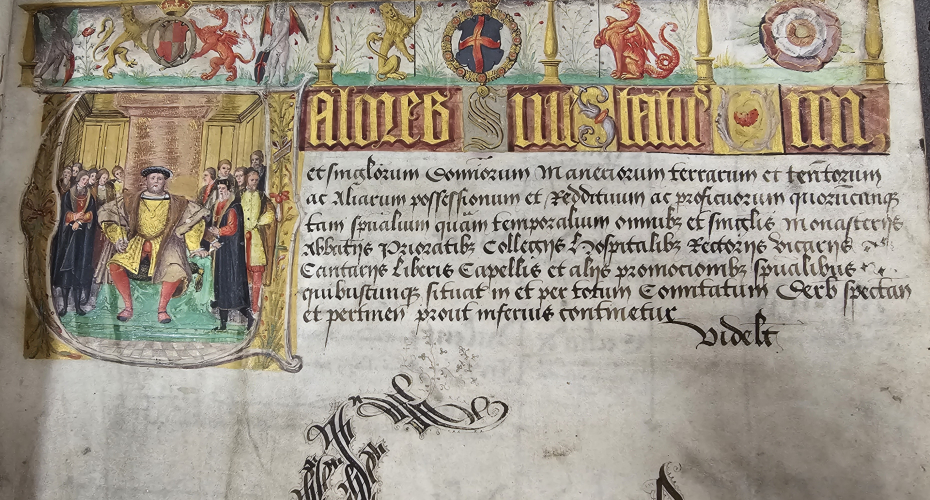 Valores Sive Status Omi
et singlorum Domiorum Maneriorum terrarum et tentorum
ac Aliarum possessionum et Reddituum ac proficuorum quorumcunqz
tam spualium quam temporalium omnibz et singlis monasterijs
Abbatijs Prioratibz Collegijs Hospitalibz Rectorijs Vicarijs
Cantarijs Liberis Capellis et alijs promocionibz spualibus
quibuscunqz situat in et per totum Comitatum Derb spectan
et pertinen prout inferius continetur
Videlt